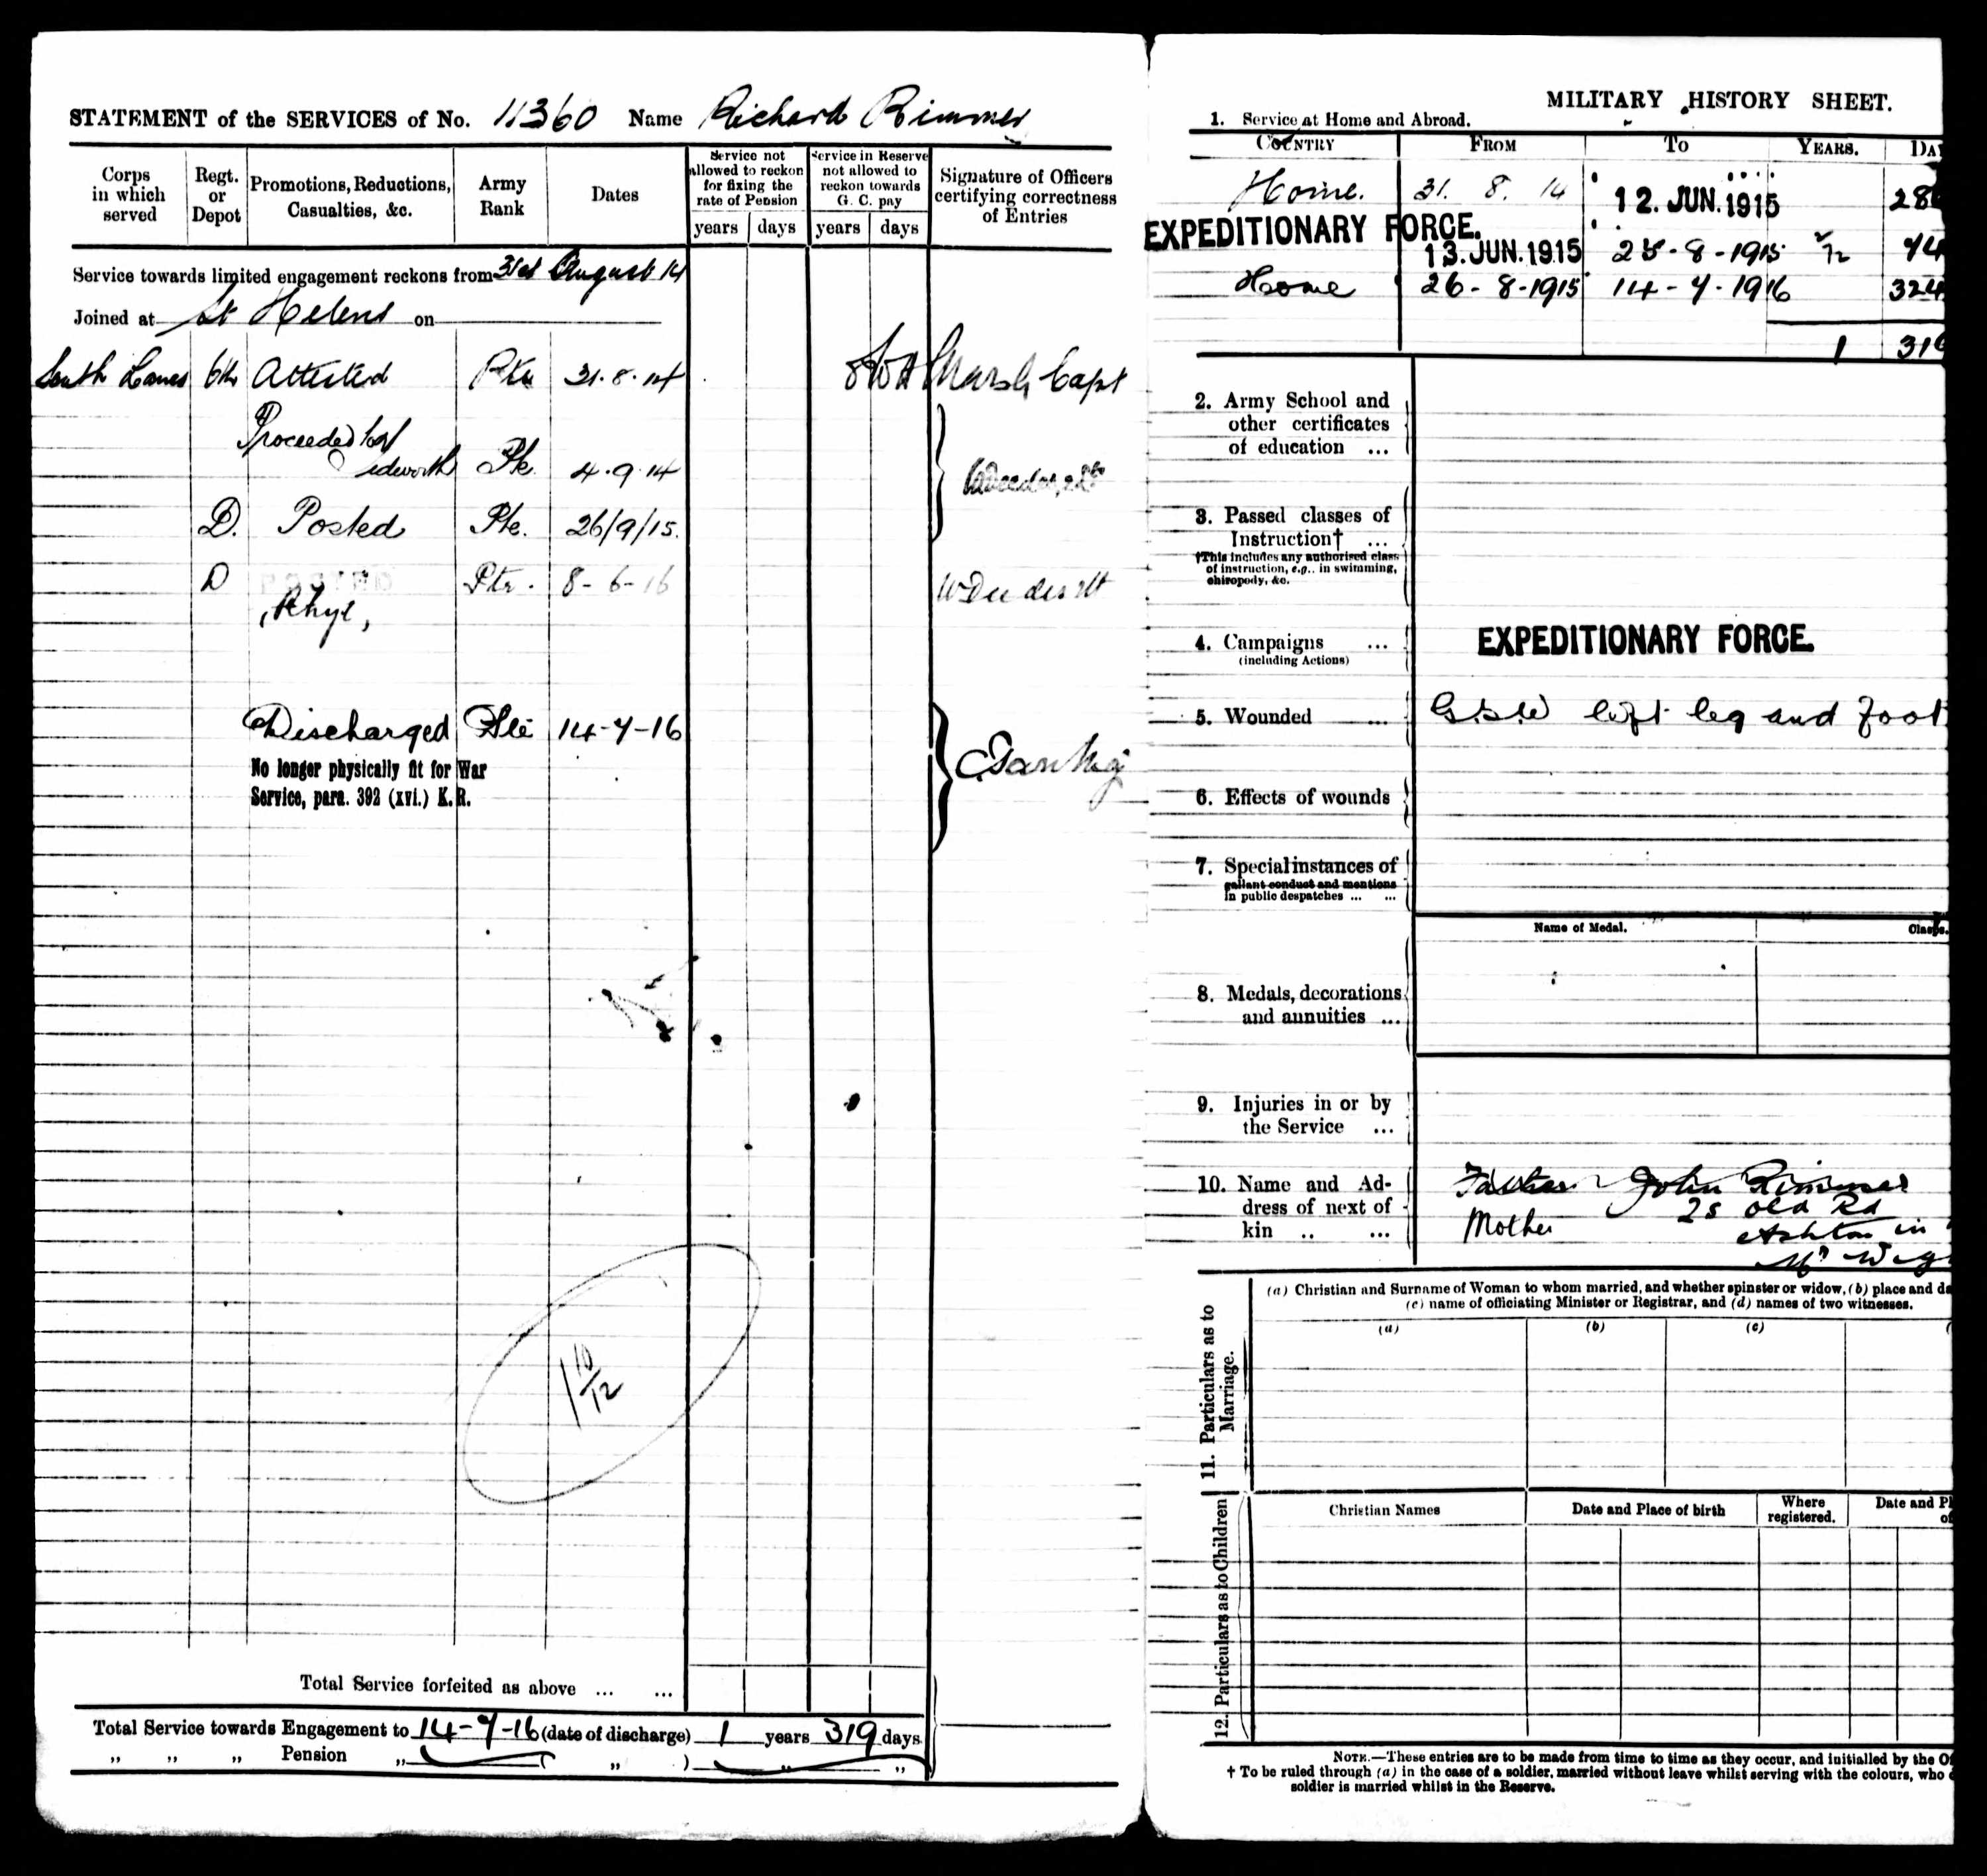 STATEMENT of the SERVICES of No. 11360 Name Richard Rimmer
Corps in which served
Regt. or Depot
Promotions, Reductions, Casualties, &c.
Army Rank
Dates
Service not allowed to reckon for fixing the rate of Pension
years days
Service in Reserve not allowed to reckon towards G. C. pay
years days
Signature of Officers certifying correctness of Entries
Service towards limited engagement reckons from 31st August 14
Joined at St Helens on
South Lancs 6th Attested Pte 31.8.14 Marsh Capt
Proceeded to
Pte 4.9.14
D. Posted Pte. 26/9/15.
D POSTED Pte. 8-6-16
Rhyl,
Discharged Pte 14-7-16
No longer physically fit for War
Service, para. 392 (xvi.) K.R.
1 10/12
Total Service forfeited as above ... ...
Total Service towards Engagement to 14-7-16 (date of discharge) 1 years 319 days
„ „ „ Pension „ ( „ ) „ „
MILITARY HISTORY SHEET.
1. Service at Home and Abroad.
COUNTRY FROM TO YEARS. DA
Home. 31. 8. 14 12. JUN. 1915 28
EXPEDITIONARY FORCE.
13. JUN. 1915 25-8-1915 74
Home 26-8-1915 14-7-1916 324
1 31
2. Army School and
other certificates
of education ...
3. Passed classes of
Instruction† ...
†This includes any authorised class
of instruction, e.g., in swimming,
chiropody, &c.
4. Campaigns ... EXPEDITIONARY FORCE.
(including Actions)
5. Wounded ... G.S.W left leg and foot
6. Effects of wounds
7. Special instances of
gallant conduct and mentions
in public despatches ... ...
Name of Medal. Clasps.
8. Medals, decorations
and annuities ...
9. Injuries in or by
the Service ...
10. Name and Ad-
dress of next of
kin .. ...
Father John Rimmer
25 Old Rd
Mother Ashton in
11. Particulars as to Marriage.
(a) Christian and Surname of Woman to whom married, and whether spinster or widow, (b) place and da
(c) name of officiating Minister or Registrar, and (d) names of two witnesses.
(a) (b) (c) (
12. Particulars as to Children
Christian Names
Date and Place of birth
Where registered.
Date and Pl
of
NOTE.—These entries are to be made from time to time as they occur, and initialled by the Of
† To be ruled through (a) in the case of a soldier, married without leave whilst serving with the colours, who
soldier is married whilst in the Reserve.